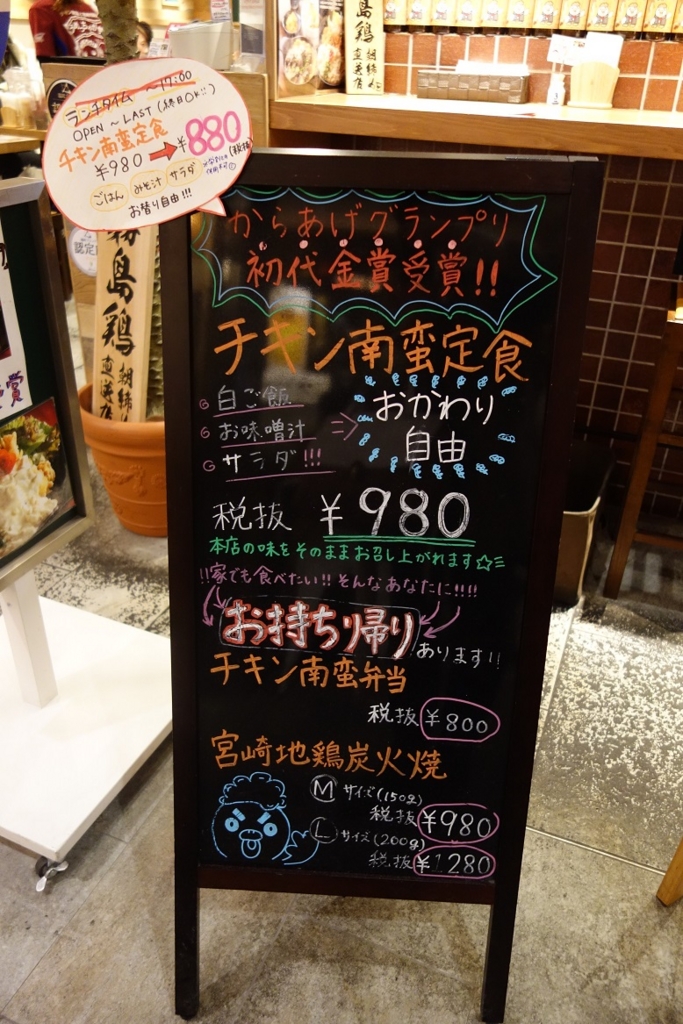 ランチタイム ～17:00
OPEN～LAST(終日OK!!)
チキン南蛮定食
¥980 → ¥880 (税抜)
ごはん みそ汁 サラダ
お替り自由!!!
からあげグランプリ
初代金賞受賞!!
チキン南蛮定食
白ご飯
お味噌汁
サラダ!!!
⇒
おかわり
自由
税抜 ¥980
本店の味をそのままお召し上がれます☆
!!家でも食べたい!! そんなあなたに!!!!
お持ち帰り
あります!!
チキン南蛮弁当
税抜 ¥800
宮崎地鶏炭火焼
Ⓜ サイズ(150g)
税抜 ¥980
Ⓛ サイズ(200g)
税抜 ¥1280
霧島鶏
朝締め
直送店
島鶏
朝締め
直送店
認定